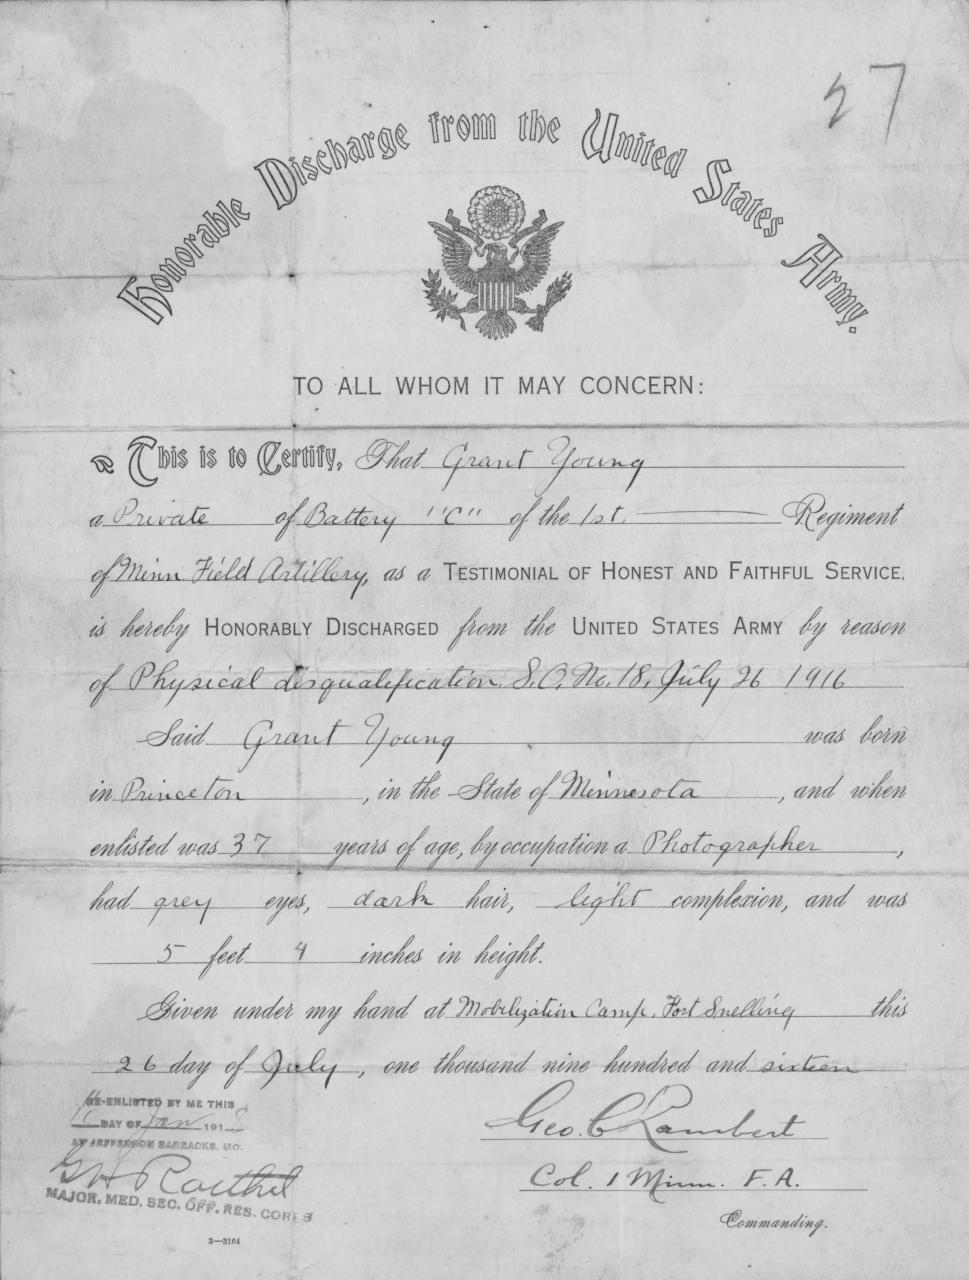 27
Honorable Discharge from the United States Army.
TO ALL WHOM IT MAY CONCERN:
This is to Certify, That Grant Young
a Private of Battery "C" of the 1st. Regiment
of Minn Field Artillery, as a TESTIMONIAL OF HONEST AND FAITHFUL SERVICE,
is hereby HONORABLY DISCHARGED from the UNITED STATES ARMY by reason
of Physical disqualification. S.O. No. 18, July 26 1916
Said Grant Young was born
in Princeton, in the State of Minnesota, and when
enlisted was 37 years of age, by occupation a Photographer,
had grey eyes, dark hair, light complexion, and was
5 feet 4 inches in height.
Given under my hand at Mobilization Camp, Fort Snelling this
26 day of July, one thousand nine hundred and sixteen
RE-ENLISTED BY ME THIS
16 DAY OF Jan 1918
AT JEFFERSON BARRACKS, MO.
MAJOR, MED. SEC. OFF. RES. CORPS
Geo. C Lambert
Col. 1 Minn. F.A.
Commanding.
3—3164